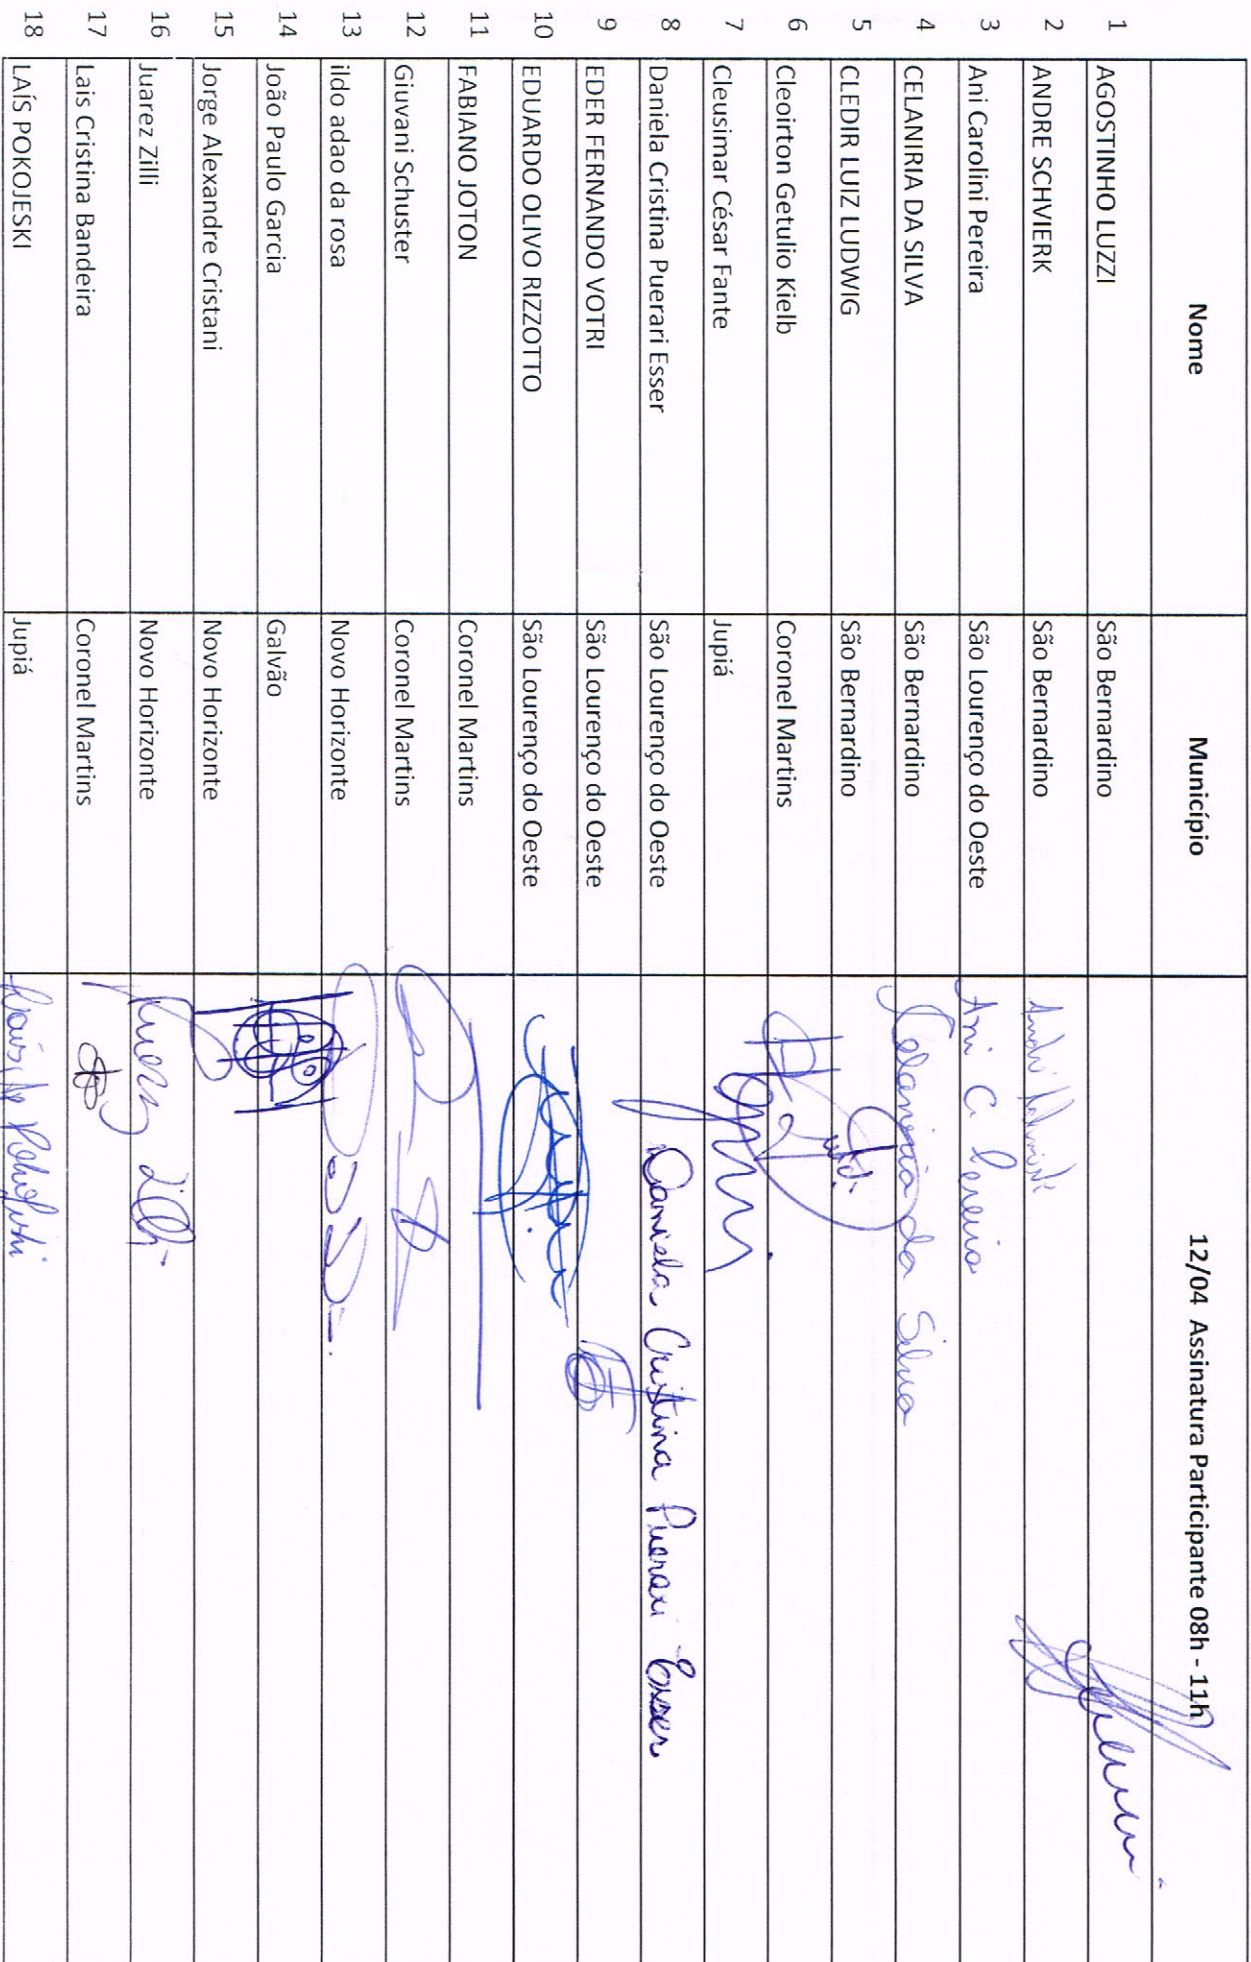 Nome Município 12/04 Assinatura Participante 08h - 11h
1 AGOSTINHO LUZZI São Bernardino
2 ANDRE SCHVIERK São Bernardino
3 Ani Carolini Pereira São Lourenço do Oeste Ani C. Pereira
4 CELANIRIA DA SILVA São Bernardino Celaniria da Silva
5 CLEDIR LUIZ LUDWIG São Bernardino
6 Cleoirton Getulio Kielb Coronel Martins
7 Cleusimar César Fante Jupiá
8 Daniela Cristina Puerari Esser São Lourenço do Oeste Daniela Cristina Puerari Esser
9 EDER FERNANDO VOTRI São Lourenço do Oeste
10 EDUARDO OLIVO RIZZOTTO São Lourenço do Oeste
11 FABIANO JOTON Coronel Martins
12 Giuvani Schuster Coronel Martins
13 ildo adao da rosa Novo Horizonte
14 João Paulo Garcia Galvão
15 Jorge Alexandre Cristani Novo Horizonte
16 Juarez Zilli Novo Horizonte Juarez Zilli
17 Lais Cristina Bandeira Coronel Martins
18 LAÍS POKOJESKI Jupiá